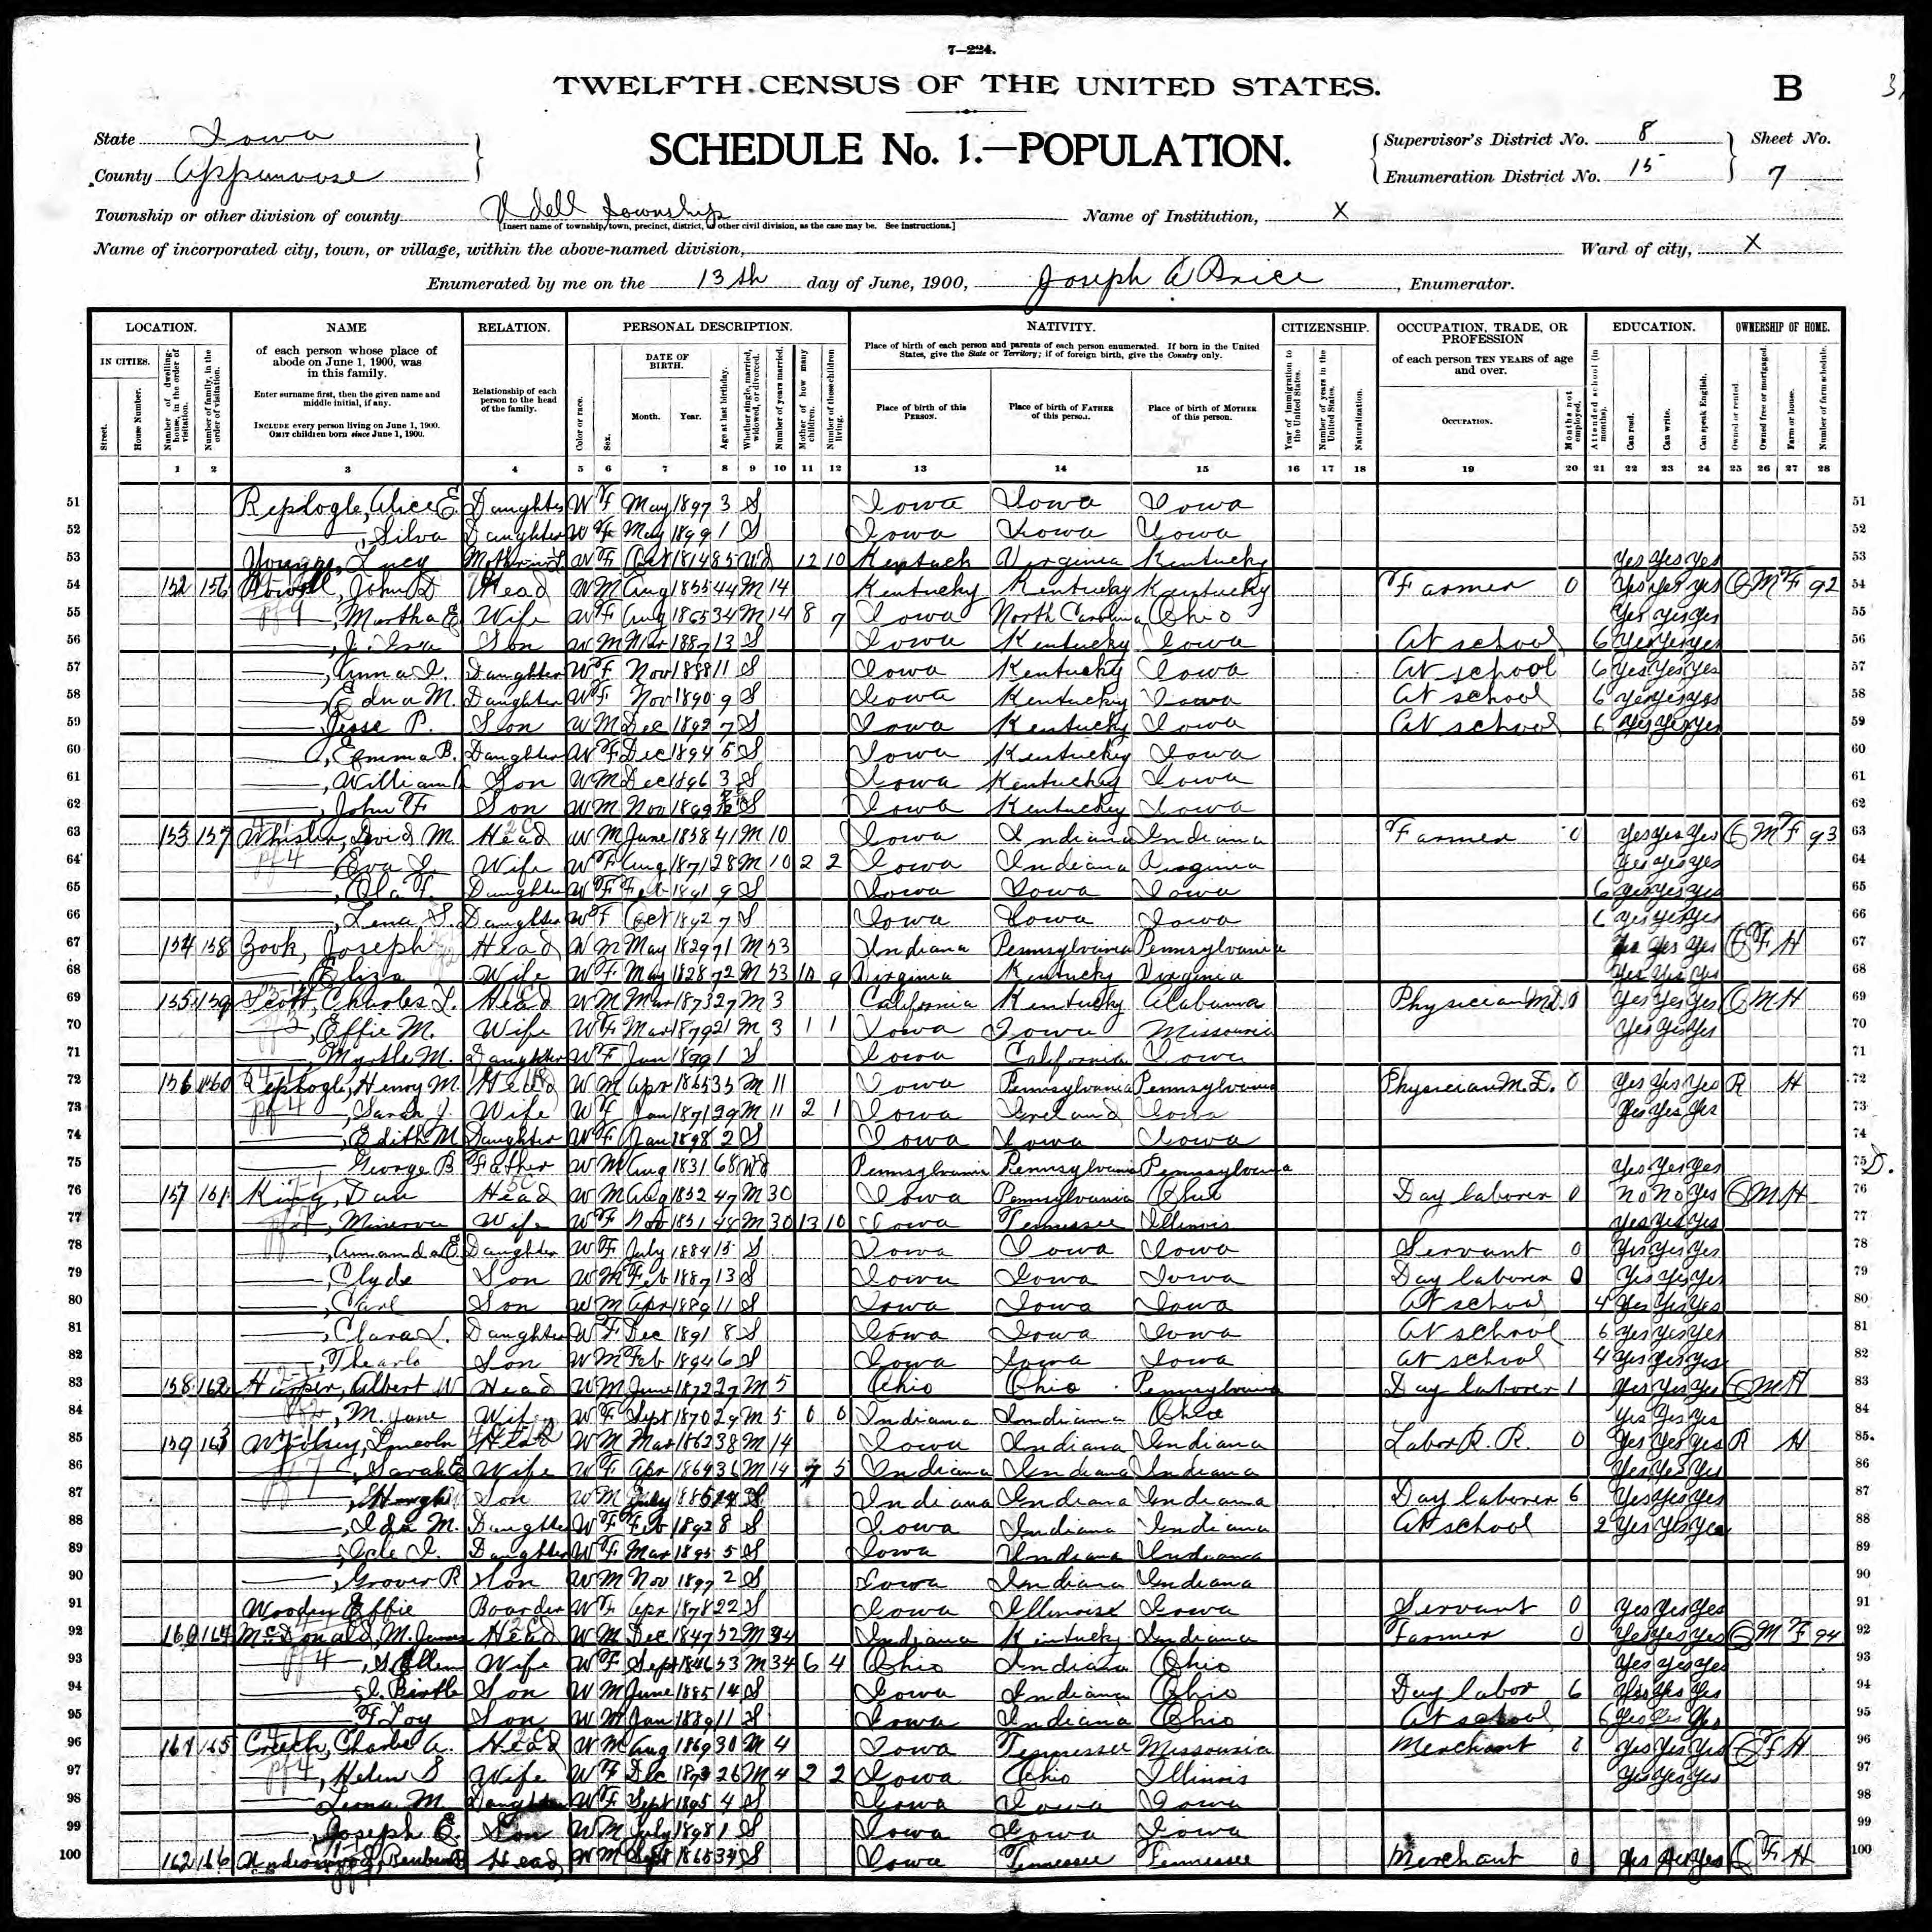 7—224.
TWELFTH CENSUS OF THE UNITED STATES.
B
State Iowa
County Appanoose
SCHEDULE No. 1.—POPULATION.
Supervisor's District No. 8
Enumeration District No. 15
Sheet No.
7
Township or other division of county Udell Township
[Insert name of township, town, precinct, district, or other civil division, as the case may be. See instructions.]
Name of Institution, X
Name of incorporated city, town, or village, within the above-named division,
Ward of city, X
Enumerated by me on the 13th day of June, 1900, Joseph A Price, Enumerator.
LOCATION. NAME RELATION. PERSONAL DESCRIPTION. NATIVITY. CITIZENSHIP. OCCUPATION, TRADE, OR PROFESSION EDUCATION. OWNERSHIP OF HOME.
IN CITIES. Street. House Number. Number of dwelling-house, in the order of visitation. Number of family, in the order of visitation.
of each person whose place of abode on June 1, 1900, was in this family.
Enter surname first, then the given name and middle initial, if any.
INCLUDE every person living on June 1, 1900. OMIT children born since June 1, 1900.
Relationship of each person to the head of the family.
Color or race. Sex. DATE OF BIRTH. Month. Year. Age at last birthday. Whether single, married, widowed, or divorced. Number of years married. Mother of how many children. Number of these children living.
Place of birth of each person and parents of each person enumerated. If born in the United States, give the State or Territory; if of foreign birth, give the Country only.
Place of birth of this PERSON. Place of birth of FATHER of this person. Place of birth of MOTHER of this person.
Year of immigration to the United States. Number of years in the United States. Naturalization.
of each person TEN YEARS of age and over.
OCCUPATION. Months not employed.
Attended school (in months). Can read. Can write. Can speak English.
Owned or rented. Owned free or mortgaged. Farm or house. Number of farm schedule.
1 2 3 4 5 6 7 8 9 10 11 12 13 14 15 16 17 18 19 20 21 22 23 24 25 26 27 28
51 Replogle, Alice E. Daughter W F May 1897 3 S Iowa Iowa Iowa 51
52 ——, Silva Daughter W F May 1899 1 S Iowa Iowa Iowa 52
53 Lucy Mother in L W F Oct 1814 85 Wd 12 10 Kentuck Virginia Kentucky Yes Yes Yes 53
54 152 156 John D Head W M Aug 1855 44 M 14 Kentucky Kentucky Kentucky Farmer 0 Yes Yes Yes O M F 92 54
55 ——, Martha E Wife W F Aug 1865 34 M 14 8 7 Iowa North Carolina Ohio Yes Yes Yes 55
56 ——, J. Ira Son W M Mar 1887 13 S Iowa Kentucky Iowa At school 6 Yes Yes Yes 56
57 ——, Anna I. Daughter W F Nov 1888 11 S Iowa Kentucky Iowa At school 6 Yes Yes Yes 57
58 ——, Edna M. Daughter W F Nov 1890 9 S Iowa Kentucky Iowa At school 6 yes yes yes 58
59 ——, Jesse P. Son W M Dec 1892 7 S Iowa Kentucky Iowa At school 6 Yes Yes Yes 59
60 ——, Emma B. Daughter W F Dec 1894 5 S Iowa Kentucky Iowa 60
61 ——, William Son W M Dec 1896 3 S Iowa Kentucky Iowa 61
62 ——, John F Son W M Nov 1899 S Iowa Kentucky Iowa 62
63 153 157 Whisler, David M. Head W M June 1858 41 M 10 Iowa Indiana Indiana Farmer 0 Yes Yes Yes O M F 93 63
64 ——, Eva J. Wife W F Aug 1871 28 M 10 2 2 Iowa Indiana Virginia Yes Yes Yes 64
65 ——, Daughter W F Feb 1891 9 S Iowa Iowa Iowa 6 yes yes yes 65
66 ——, Lena S. Daughter W F Oct 1892 7 S Iowa Iowa Iowa 6 yes yes yes 66
67 154 158 Zook, Joseph Head W M May 1829 71 M 53 Indiana Pennsylvania Pennsylvania Yes Yes Yes O F H 67
68 ——, Eliza Wife W F May 1828 72 M 53 10 9 Virginia Kentucky Virginia Yes Yes Yes 68
69 155 159 Scott, Charles L. Head W M Mar 1873 27 M 3 California Kentucky Alabama Physician M.D. 0 Yes Yes Yes O M H 69
70 ——, Effie M. Wife W F Mar 1879 21 M 3 1 1 Iowa Iowa Missouri Yes Yes Yes 70
71 ——, Myrtle M. Daughter W F Jan 1899 1 S Iowa California Iowa 71
72 156 160 Replogle, Henry M. Head W M Apr 1865 35 M 11 Iowa Pennsylvania Pennsylvania Physician M.D. 0 Yes Yes Yes R H 72
73 ——, Sarah J. Wife W F Jan 1871 29 M 11 2 1 Iowa Ireland Iowa Yes Yes Yes 73
74 ——, Edith M Daughter W F Jan 1898 2 S Iowa Iowa Iowa 74
75 —— George B Father W M Aug 1831 68 Wd Pennsylvania Pennsylvania Pennsylvania Yes Yes Yes 75 D.
76 157 161 King, Dan Head W M Aug 1852 47 M 30 Iowa Pennsylvania Ohio Day laborer 0 no no yes O M H 76
77 ——, Minerva Wife W F Nov 1851 48 M 30 13 10 Iowa Tennessee Illinois yes yes yes 77
78 ——, Amanda E Daughter W F July 1884 15 S Iowa Iowa Iowa Servant 0 Yes Yes Yes 78
79 ——, Clyde Son W M Feb 1887 13 S Iowa Iowa Iowa Day laborer 0 Yes Yes Yes 79
80 ——, Carl Son W M Apr 1889 11 S Iowa Iowa Iowa At school 4 Yes Yes Yes 80
81 ——, Clara L. Daughter W F Dec 1891 8 S Iowa Iowa Iowa At school 6 yes Yes Yes 81
82 ——, Thearlo Son W M Feb 1894 6 S Iowa Iowa Iowa at school 4 Yes Yes Yes 82
83 158 162 Harper, Albert W Head W M June 1872 27 M 5 Ohio Ohio Pennsylvania Day laborer 1 Yes Yes Yes O M H 83
84 ——, M. Jane Wife W F Sept 1870 29 M 5 0 0 Indiana Indiana Ohio Yes Yes Yes 84
85 159 163 Lincoln Head W M Mar 1862 38 M 14 Iowa Indiana Indiana Labor R. R. 0 Yes Yes Yes R H 85
86 ——, Sarah E Wife W F Apr 1864 36 M 14 7 5 Indiana Indiana Indiana Yes Yes Yes 86
87 ——, Son W M July S Indiana Indiana Indiana Day laborer 6 Yes Yes Yes 87
88 ——, Ida M. Daughter W F Feb 1892 8 S Iowa Indiana Indiana At school 2 Yes Yes Yes 88
89 ——, Daughter W F Mar 1895 5 S Iowa Indiana Indiana 89
90 ——, Grover R Son W M Nov 1897 2 S Iowa Indiana Indiana 90
91 Wooden Effie Boarder W F Apr 1878 22 S Iowa Illinoise Iowa Servant 0 Yes Yes Yes 91
92 160 164 McDonald, M. James Head W M Dec 1847 52 M 34 Indiana Kentucky Indiana Farmer 0 Yes Yes Yes O M F 94 92
93 ——, S Ellen Wife W F Sept 1846 53 M 34 6 4 Ohio Indiana Ohio Yes Yes Yes 93
94 ——, Son W M June 1885 14 S Iowa Indiana Ohio Day labor 6 Yes Yes Yes 94
95 —— F Loy Son W M Jan 1889 11 S Iowa Indiana Ohio At school 6 Yes Yes Yes 95
96 161 165 Creech, Charles A. Head W M Aug 1869 30 M 4 Iowa Tennessee Missouria Merchant 0 Yes Yes Yes O F H 96
97 ——, Helen S Wife W F Dec 1873 26 M 4 2 2 Iowa Ohio Illinois Yes Yes Yes 97
98 —— Leona M. Daughter W F Sept 1895 4 S Iowa Iowa Iowa 98
99 ——, Joseph E. Son W M July 1898 1 S Iowa Iowa Iowa 99
100 162 166 Reuben Head W M Sept 1865 34 S Iowa Tennessee Tennessee Merchant 0 Yes Yes Yes O F H 100